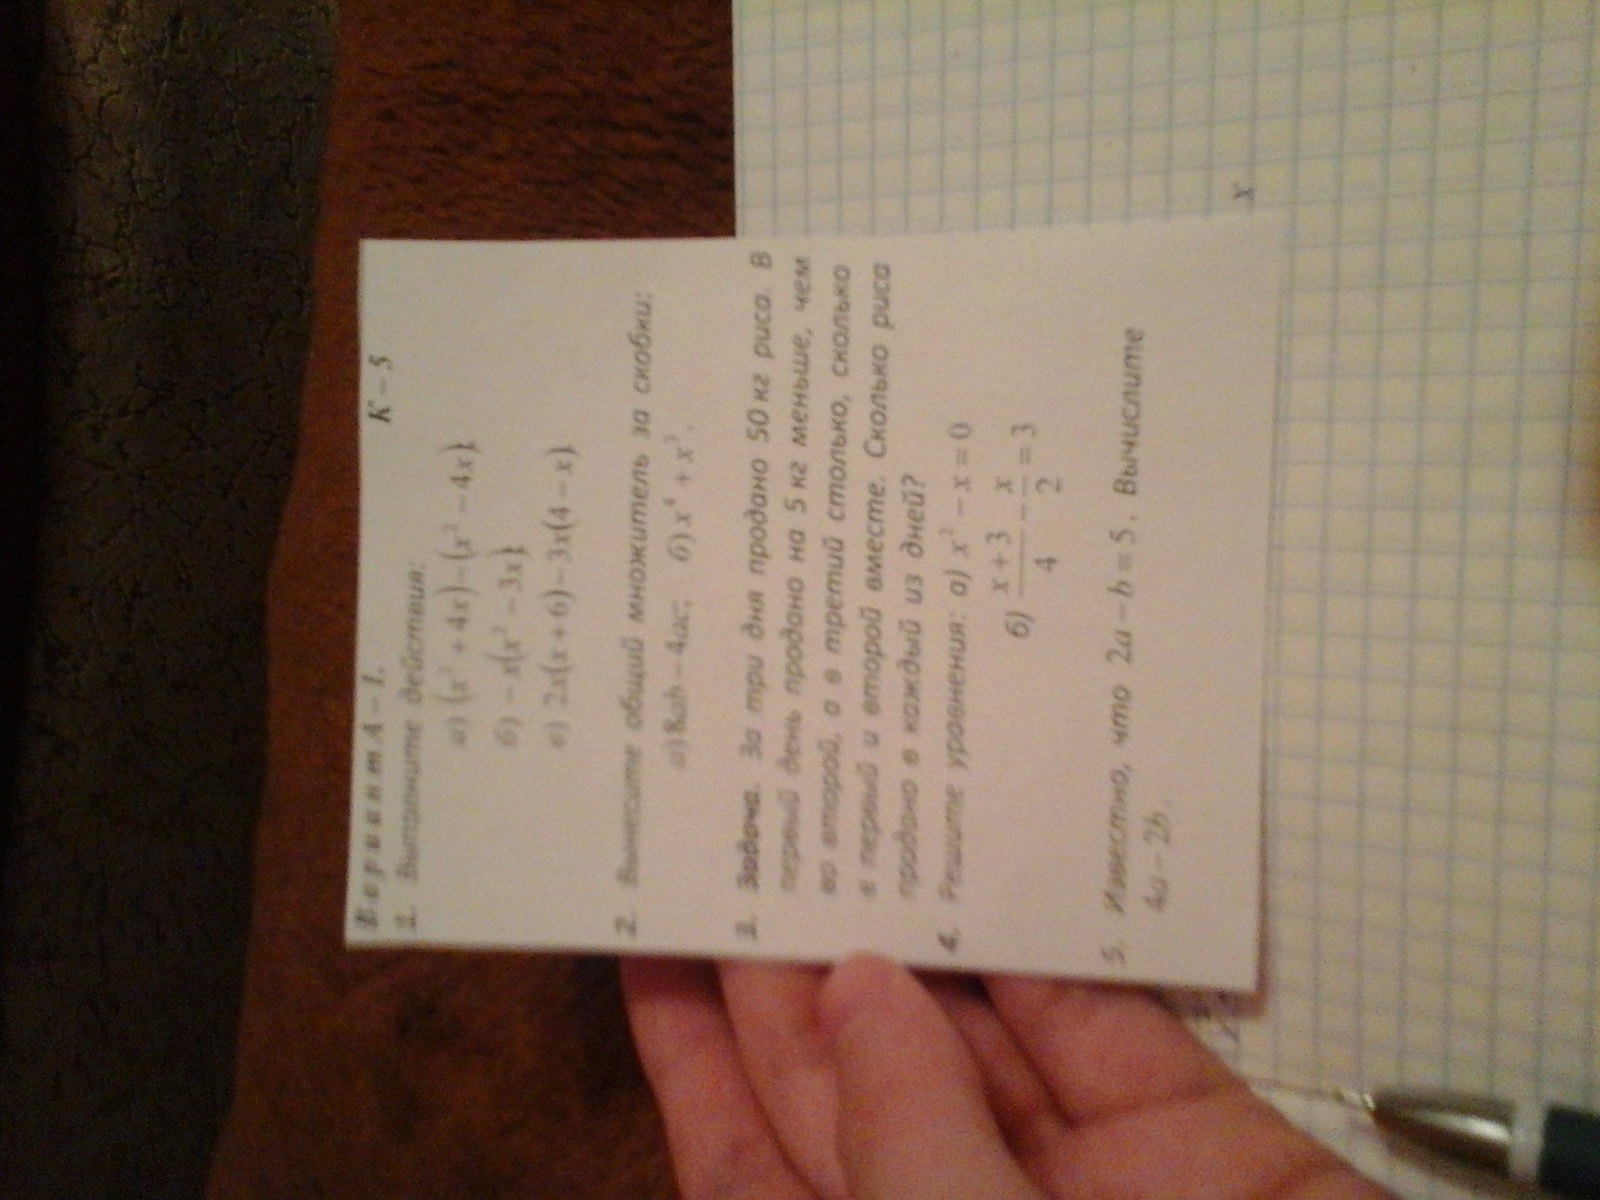 Вариант А – 1. К – 5
1. Выполните действия:
а) (x² + 4x) – (x² – 4x);
б) – x(x² – 3x);
в) 2x(x + 6) – 3x(4 – x).
2. Вынесите общий множитель за скобки:
а) 8ab – 4ac; б) x⁴ + x³.
3. Задача. За три дня продано 50 кг риса. В
первый день продано на 5 кг меньше, чем
во второй, а в третий столько, сколько
в первый и второй вместе. Сколько риса
продано в каждый из дней?
4. Решите уравнения: а) x² – x = 0
б) (x + 3)/4 – x/2 = 3
5. Известно, что 2a – b = 5. Вычислите
4a – 2b.
x